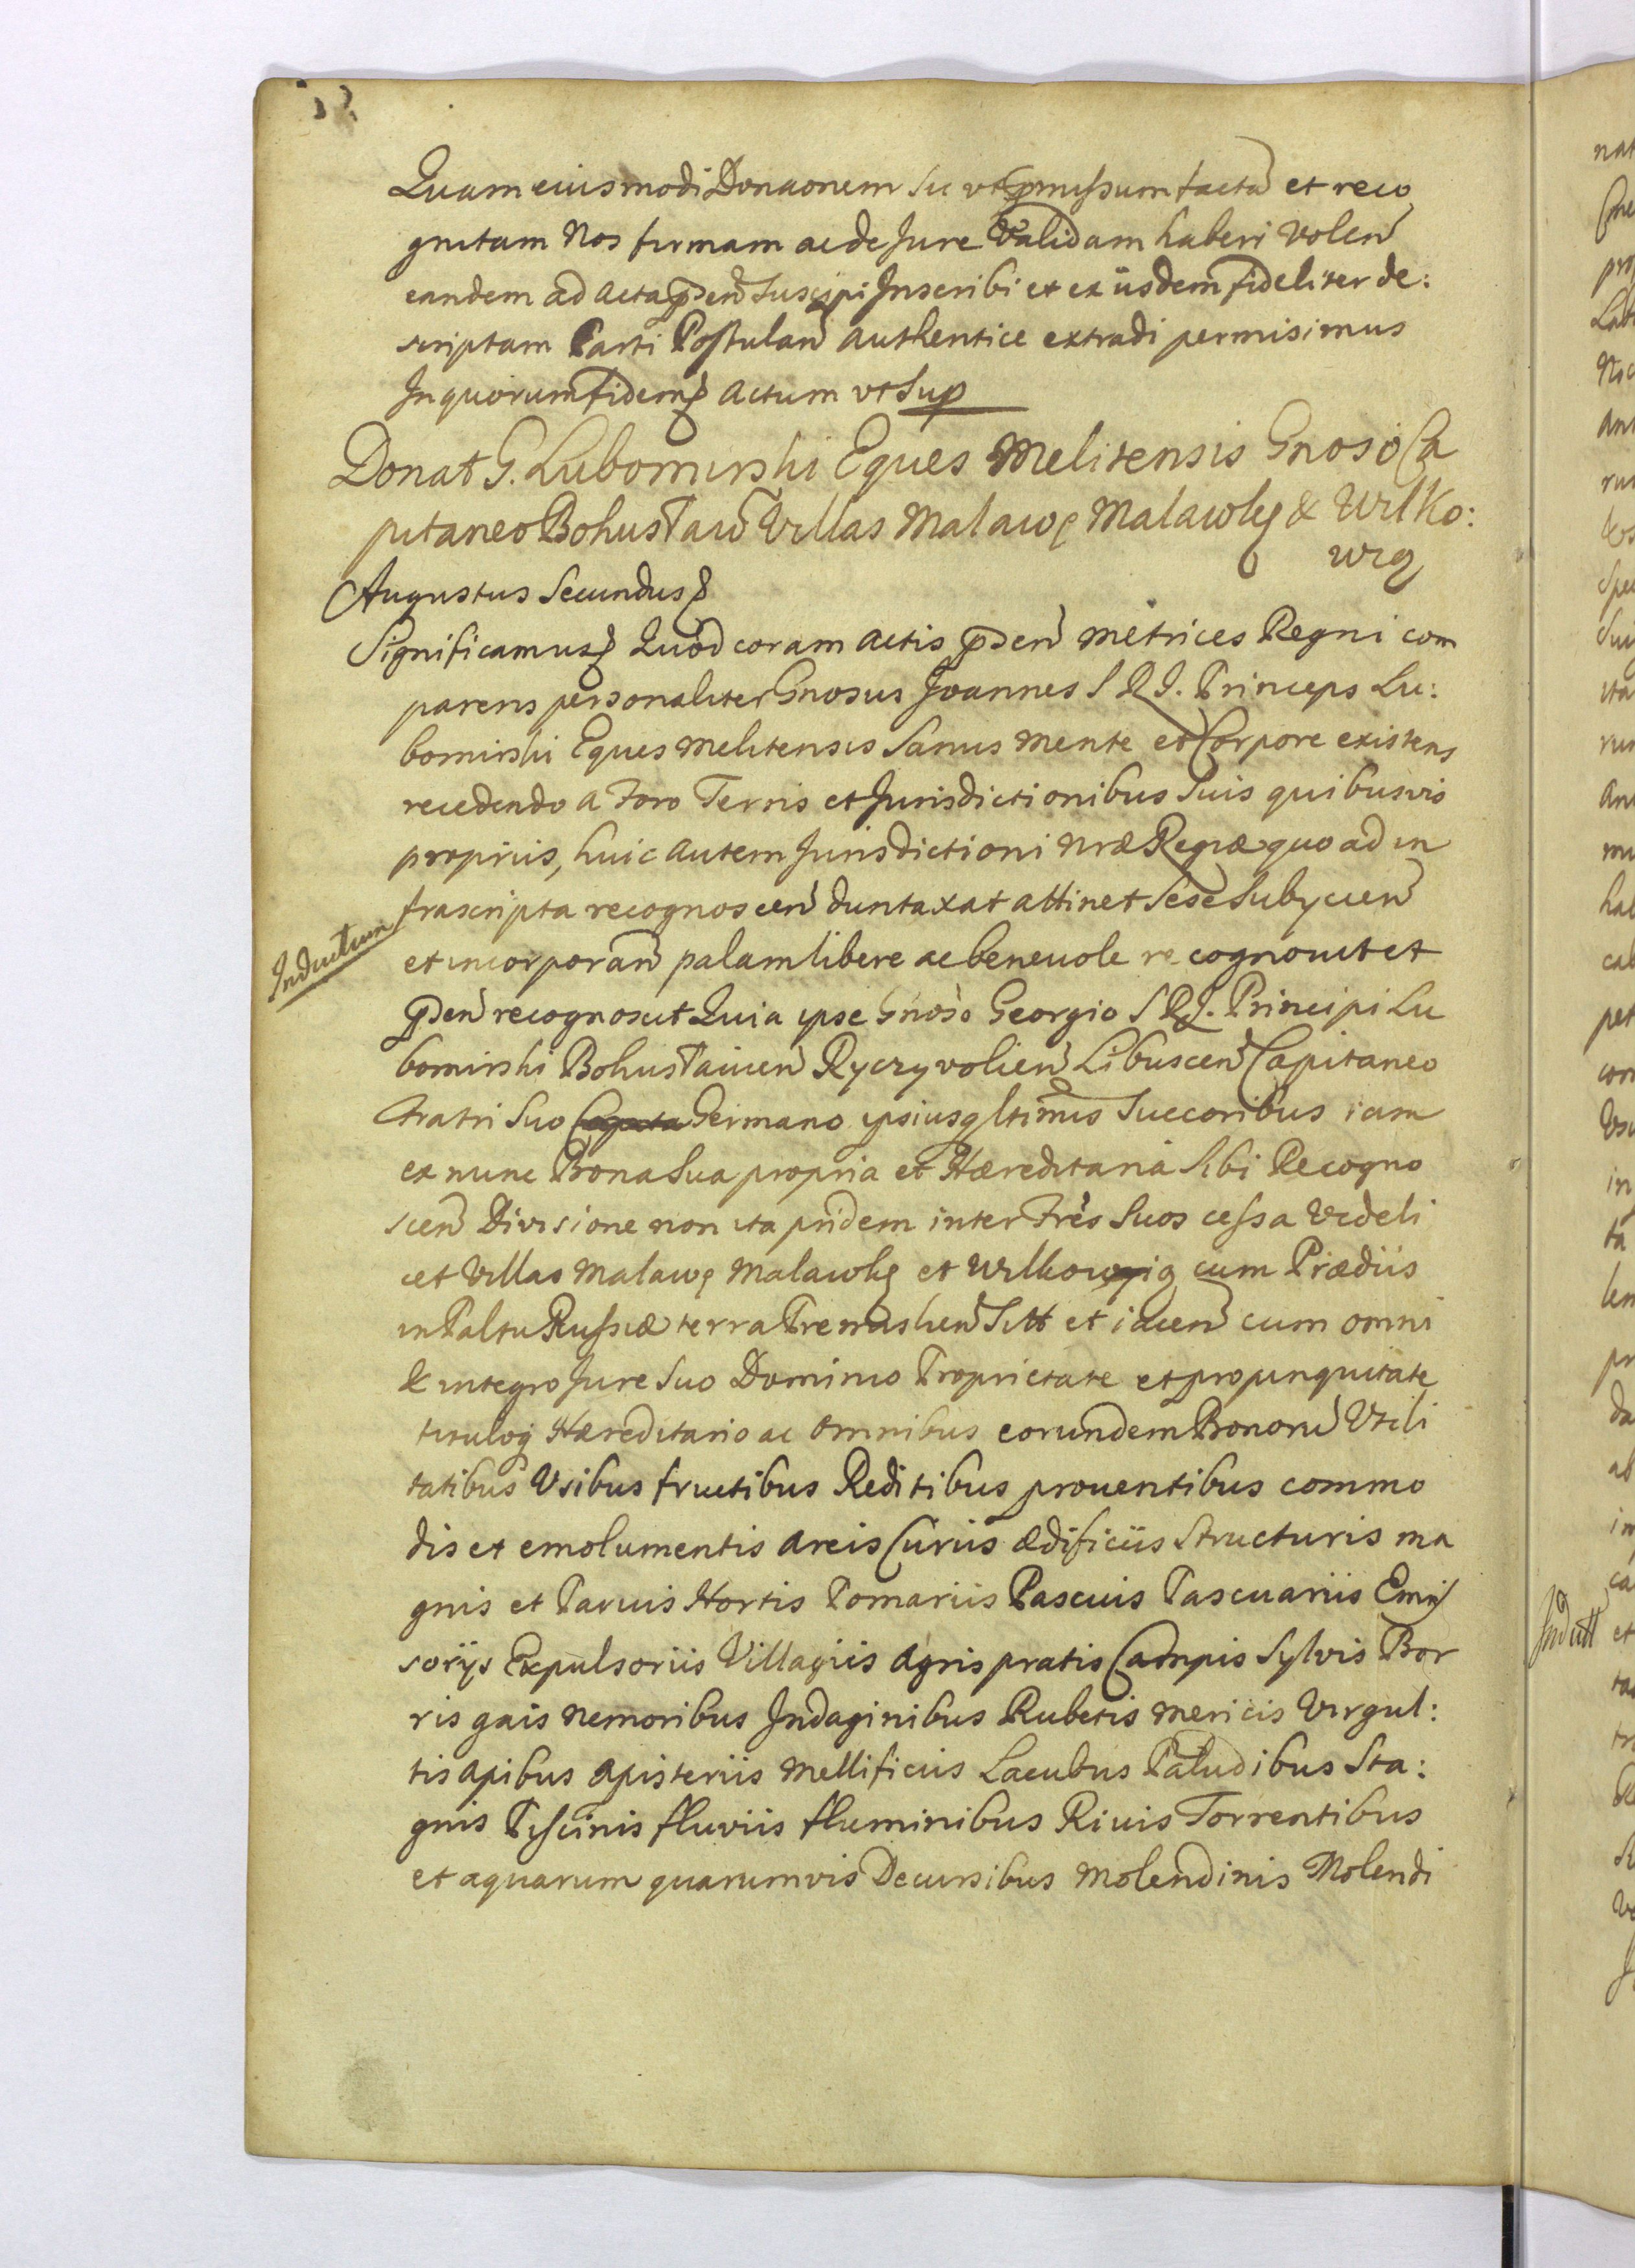 Quam eiusmodi Donaonem sic vt pmissum factã et reco
gnitam Nos firmam ac de Jure Validam haberi Volen̄
eandem ad Acta p̄sen̄ Suscipi Inscribi et ex iisdem fideliter de:
scriptam Parti Postulan̄ authentice extradi permisimus
In quorum fidem Actum vt Sup
Donat G. Lubomirski Eques Melitensis Gnoso Ca
pitaneo Bohuslaw̄ Villas Malawę Malawkę & Wilko:
wią
Augustus Secundus
Significamus Quod coram Actis p̄sen̄ Metrices Regni com
parens personaliter Gnosus Joannes S R I. Princeps Lu:
bomirski Eques Melitensis Sanus Mente et Corpore existens
recedendo a Foro Terris et Jurisdictionibus Suis quibusvis
propriis, huic autem Jurisdictioni Nræ Regiæ quo ad in
Inductum
frascripta recognoscen̄ duntaxat attinet Sese Subycien̄
et incorporan̄ palam libere ac beneuole re cognouit et
p̄sen̄ recognoscit Quia ipse Gnoso Georgio S R I. Principi Lu
bomirski Bohuslauien̄ Ryczyvolien̄ Libuscen̄ Capitaneo
Fratri Suo Capita Germano ipsiusq ltimis Succoribus iam
ex nunc Bona Sua propria et Hæreditaria Sibi Recogno
scen̄ Divisione non ita pridem inter Fres Suos cessa Videli
cet Villas Malawę Malawkę et Wilkowyią cum Prædiis
in Paltu Russiæ terra Premislien̄ Sitt et iacen̄ cum omni
& integro Jure Suo Dominio Proprietate et propinquitate
tituloq Hæreditario ac Omnibus eorundem Bonorũ Vtili
tatibus Vsibus fructibus Reditibus prouentibus commo
dis et emolumentis areis Curiis ædificiis Structuris ma
gnis et Paruis Hortis Pomariis Pascuis Pascuariis Emis
sorijs Expulsoriis Villagiis Agris pratis Campis Sylvis Bor
ris gais Nemoribus Indaginibus Rubetis Mericis Virgul:
tis Apibus Apisteriis Mellificiis Lacubus Paludibus Sta:
gnis Piscinis fluviis fluminibus Riuis Torrentibus
et aquarum quarumvis Decursibus Molendinis Molendi